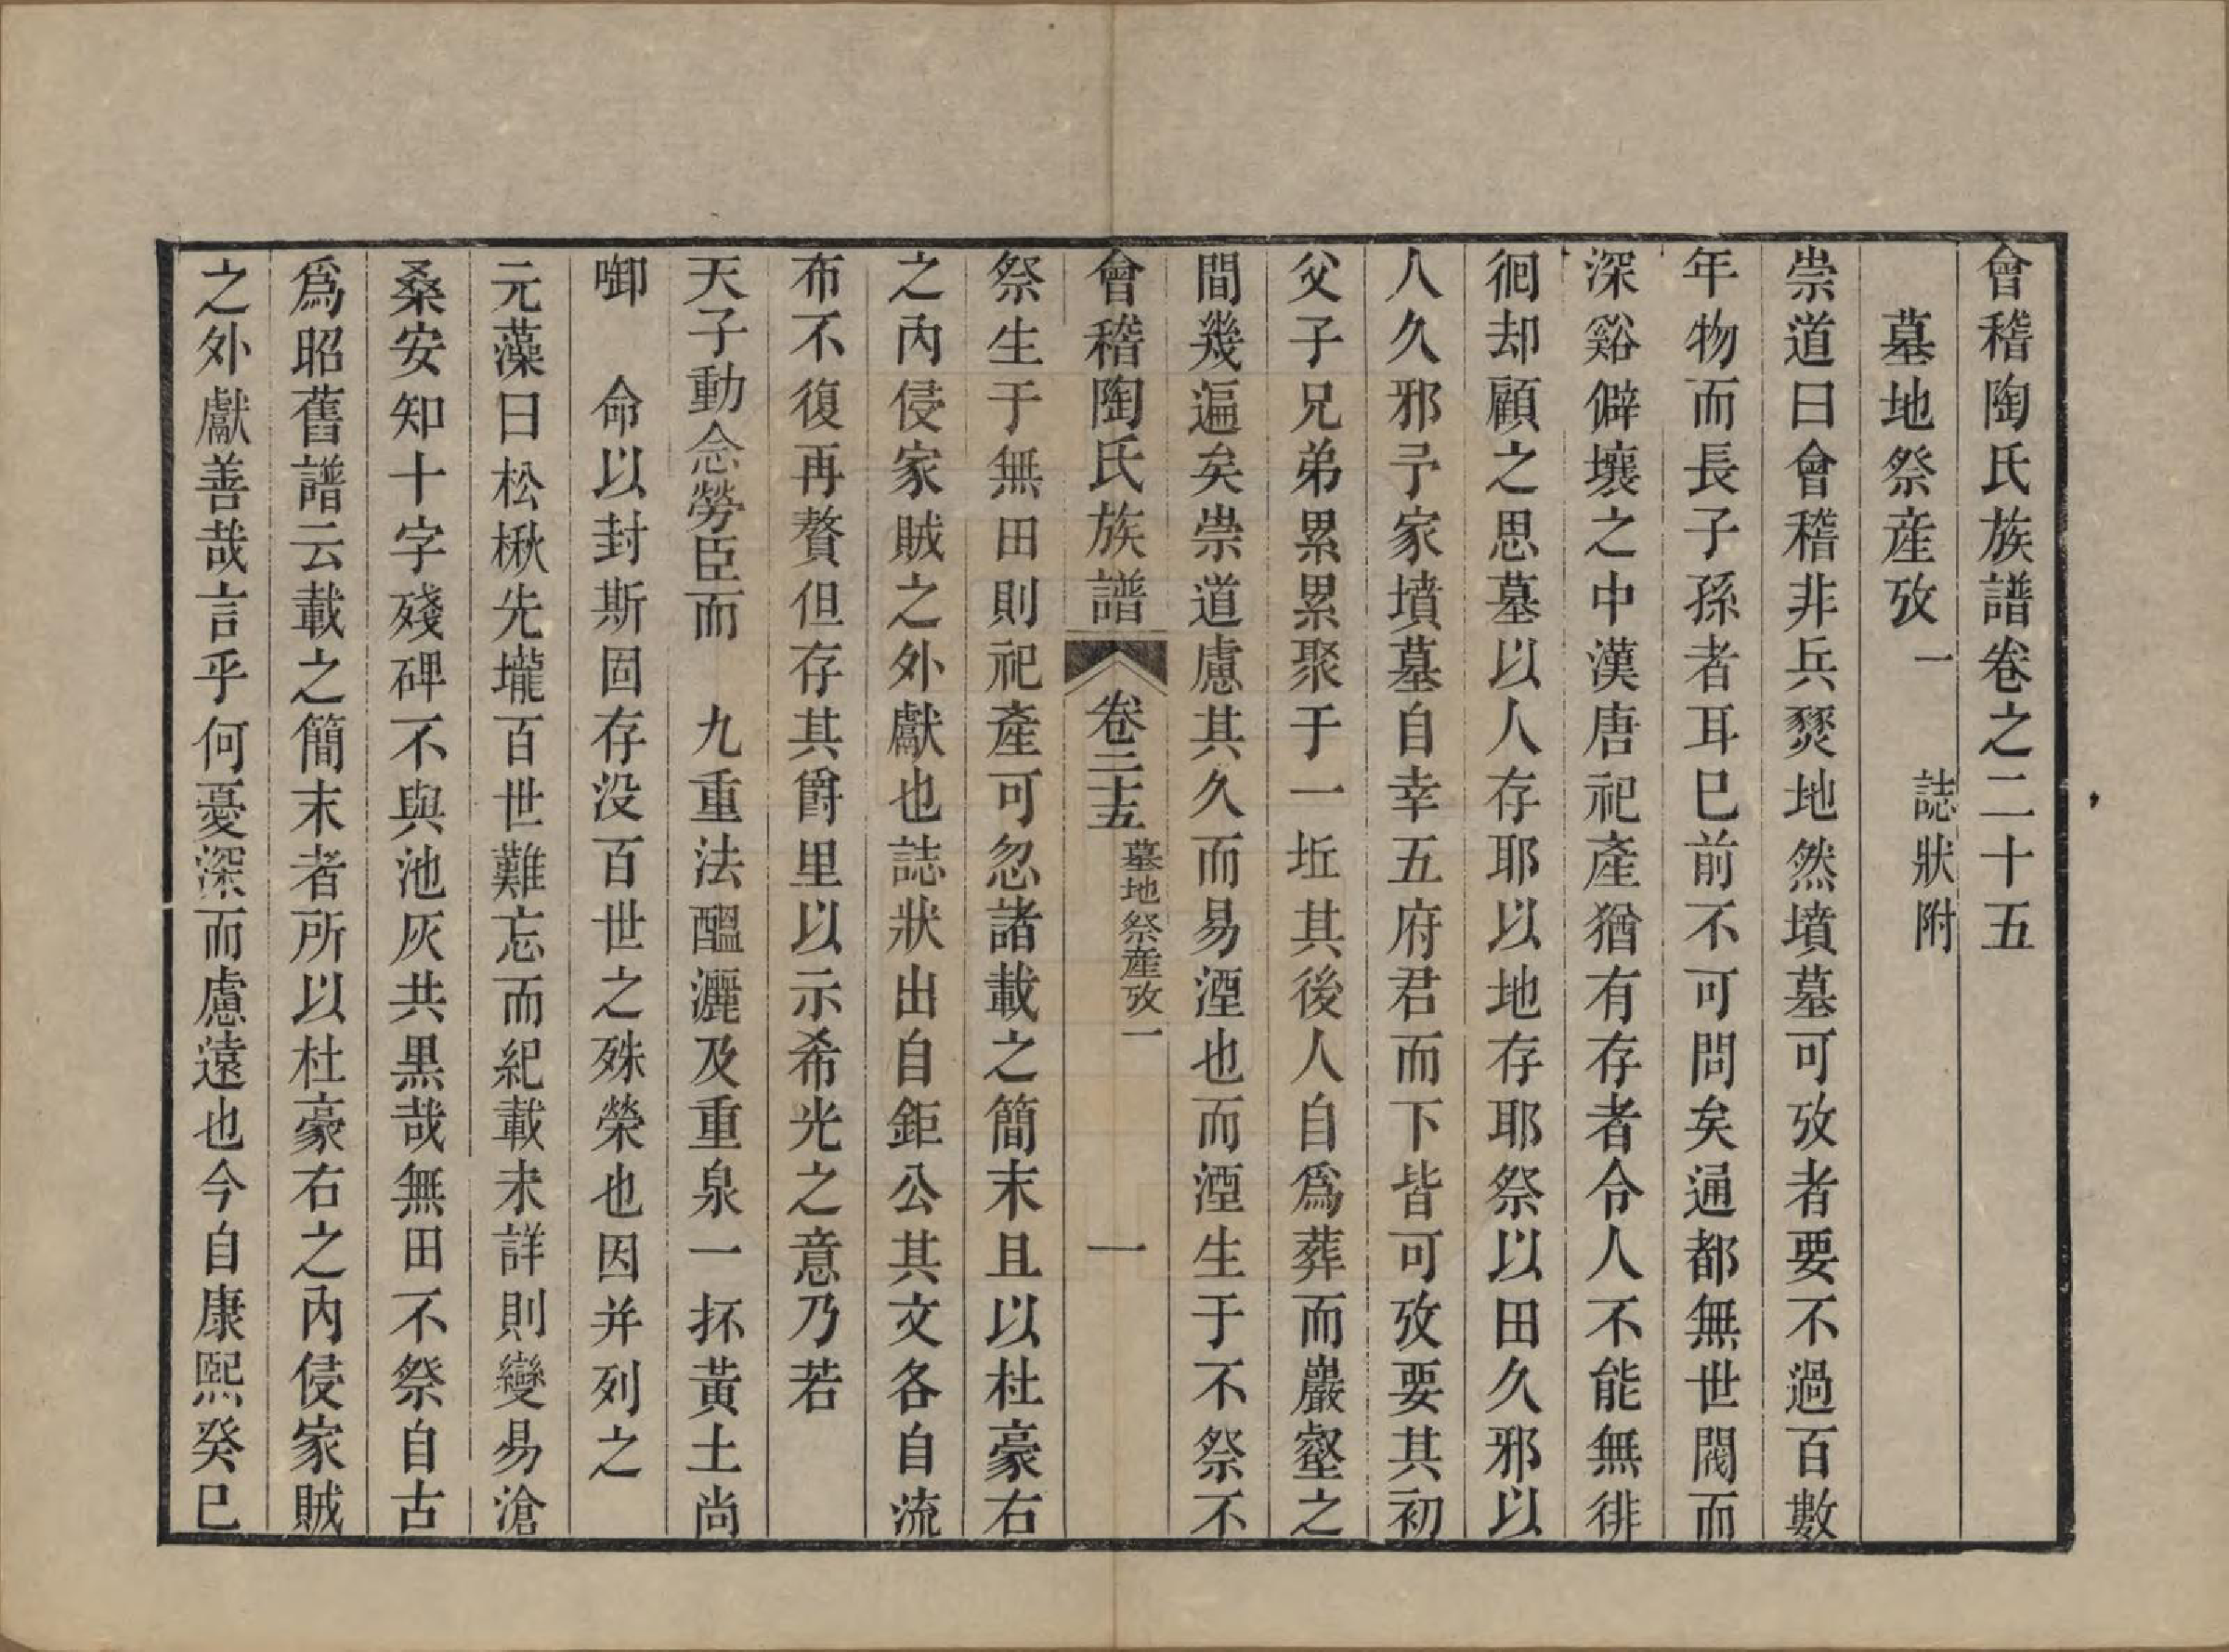 會稽陶氏族譜卷之二十五
墓地祭産攷一　誌狀附
崇道曰會稽非兵燹地然墳墓可攷者要不過百數
年物而長子孫者耳巳前不可問矣通都無世閥而
深谿僻壤之中漢唐祀產猶有存者令人不能無徘
徊却顧之思墓以人存耶以地存耶祭以田久邪以
人久邪予家墳墓自幸五府君而下皆可攷要其初
父子兄弟累累聚于一坵其後人自爲葬而巖壑之
間幾遍矣崇道慮其久而易湮也而湮生于不祭不
會稽陶氏族譜　卷二十五　墓地祭産攷一　一
祭生于無田則祀產可忽諸載之簡末且以杜豪右
之內侵家賊之外獻也誌狀出自鉅公其文各自流
布不復再贅但存其爵里以示希光之意乃若
天子動念勞臣而　九重法醞灑及重泉一抔黃土尚
啣　命以封斯固存没百世之殊榮也因并列之
元藻曰松楸先壠百世難忘而紀載未詳則變易滄
桑安知十字殘碑不與池灰共黒哉無田不祭自古
爲昭舊譜云載之簡末者所以杜豪右之內侵家賊
之外獻善哉言乎何憂深而慮遠也今自康熙癸巳